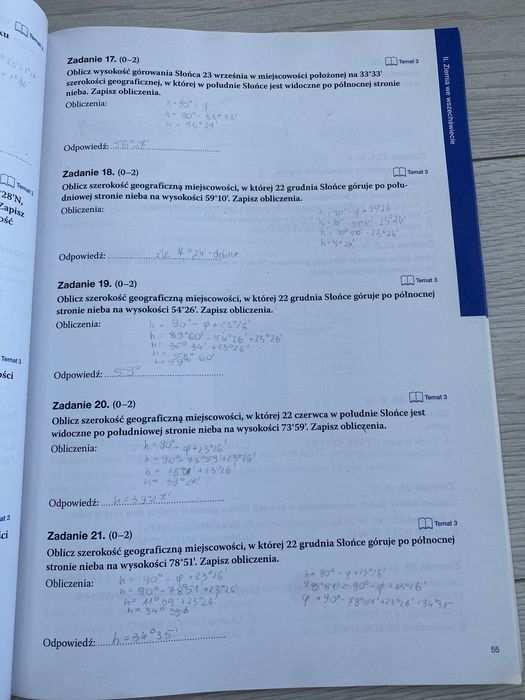 Temat 3
Zadanie 17. (0–2)
Temat 3
Oblicz wysokość górowania Słońca 23 września w miejscowości położonej na 33°33'
szerokości geograficznej, w której w południe Słońce jest widoczne po północnej stronie
nieba. Zapisz obliczenia.
Obliczenia:
h = 90° - φ
h = 90° - 33° 33'
h = 56° 27'
Odpowiedź: 56° 27'
Zadanie 18. (0–2)
Temat 3
Oblicz szerokość geograficzną miejscowości, w której 22 grudnia Słońce góruje po połu-
dniowej stronie nieba na wysokości 59°10'. Zapisz obliczenia.
Obliczenia:
Odpowiedź:
Zadanie 19. (0–2)
Temat 3
Oblicz szerokość geograficzną miejscowości, w której 22 grudnia Słońce góruje po północnej
stronie nieba na wysokości 54°26'. Zapisz obliczenia.
Obliczenia:
h = 90° - φ + 23°26'
h = 89°60' - 54°26' + 23°26'
h = 35° 34' + 23°26'
h = 58° 60'
h = 59°
Odpowiedź: 59°
Zadanie 20. (0–2)
Temat 3
Oblicz szerokość geograficzną miejscowości, w której 22 czerwca w południe Słońce jest
widoczne po południowej stronie nieba na wysokości 73°59'. Zapisz obliczenia.
Obliczenia:
h = 90° - φ + 23°26'
h = 90° - 73°59' + 23°26'
h = 39° 27'
Odpowiedź: h = 39°27'
Zadanie 21. (0–2)
Temat 3
Oblicz szerokość geograficzną miejscowości, w której 22 grudnia Słońce góruje po północnej
stronie nieba na wysokości 78°51'. Zapisz obliczenia.
Obliczenia:
h = 90° - φ + 23°26'
h = 90° - 78°51' + 23°26'
h = 11° 09' + 23°26'
h = 34° 35'
h = 90° - φ + 23°26'
78°51' = 90° - φ + 23°26'
φ = 90° - 78°51' + 23°26' = 34°35'
Odpowiedź: h = 34°35'
II. Ziemia we wszechświecie
55